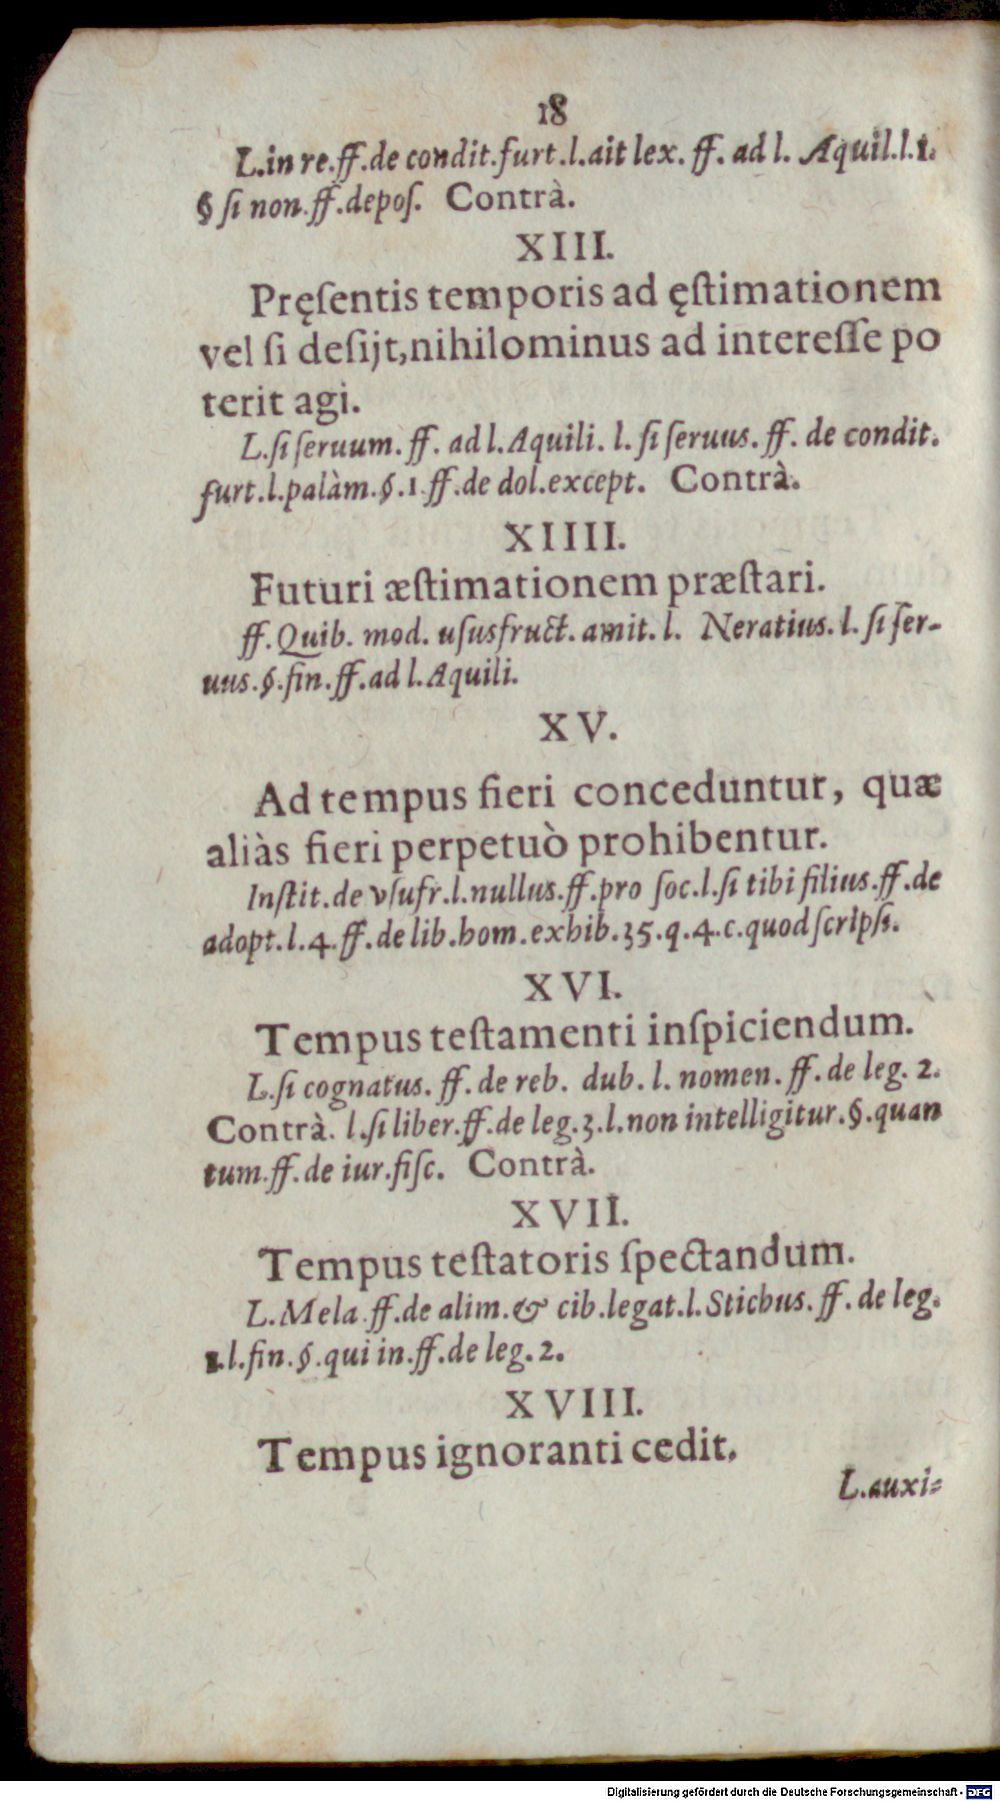 18
L.in re.ff.de condit.furt.l.ait lex. ff. ad l. Aquil.l.1.
§ ſi non.ff.depoſ. Contrà.
XIII.
Pręſentis temporis ad ęſtimationem
vel ſi deſijt,nihilominus ad intereſſe po
terit agi.
L.ſi ſeruum. ff. ad l.Aquili. l. ſi ſeruus. ff. de condit.
furt.l.palàm.§.1 ff.de dol.except. Contrà.
XIIII.
Futuri æſtimationem præſtari.
ff.Quib. mod. uſusfruct. amit. l. Neratius. l. ſi ſer-
uus.§.fin.ff.ad l.Aquili.
XV.
Ad tempus fieri conceduntur, quæ
aliàs fieri perpetuò prohibentur.
Inſtit.de vſufr.l.nullus.ff.pro ſoc.l.ſi tibi filius.ff.de
adopt.l.4.ff.de lib.hom.exhib.35.q.4.c.quod ſcripſi.
XVI.
Tempus teſtamenti inſpiciendum.
L.ſi cognatus. ff. de reb. dub. l. nomen. ff. de leg. 2.
Contrà. l.ſi liber.ff.de leg.3.l.non intelligitur.§.quan
tum.ff.de iur.fiſc. Contrà.
XVII.
Tempus teſtatoris ſpectandum.
L.Mela.ff.de alim.& cib.legat.l.Stichus. ff. de leg.
1.l.fin.§.qui in.ff.de leg. 2.
XVIII.
Tempus ignoranti cedit.
L.auxi-
Digitalisierung gefördert durch die Deutsche Forschungsgemeinschaft - DFG